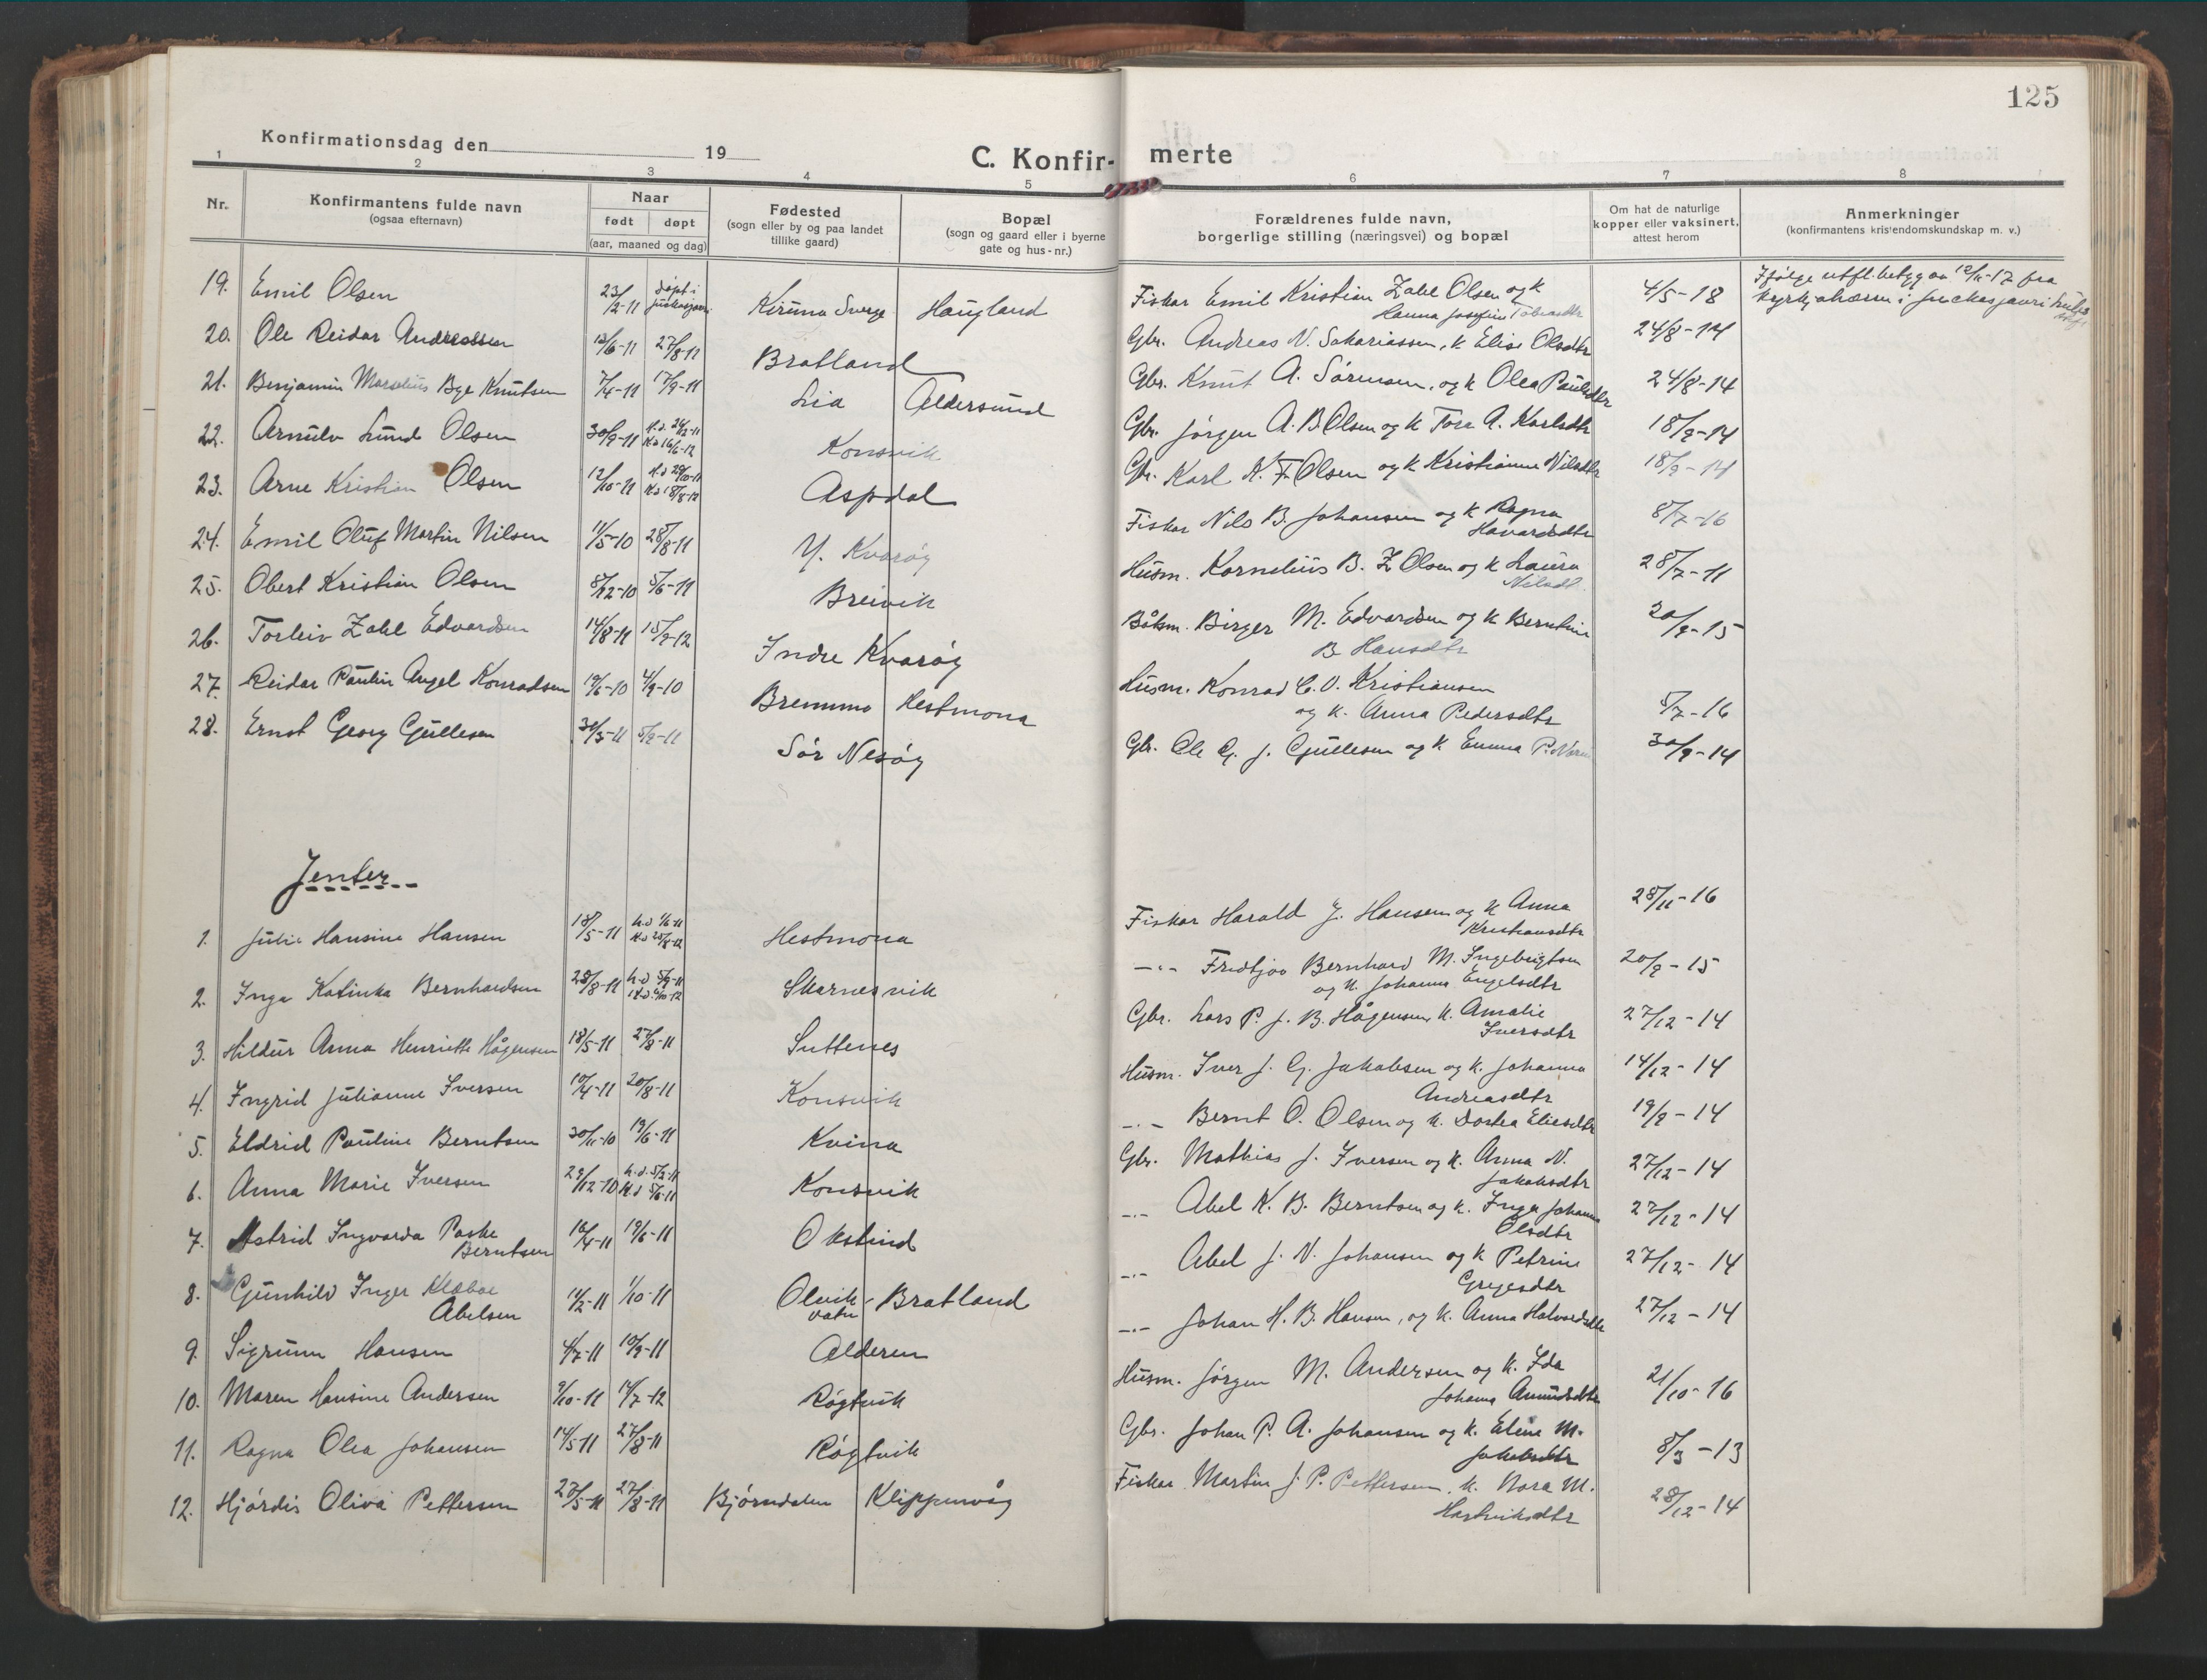 125
Konfirmationsdag den 19
C. Konfir- merte
1 2 3 4 5 6 7 8
Nr. Konfirmantens fulde navn (ogsaa efternavn)
Naar født døpt (aar, maaned og dag)
Fødested (sogn eller by og paa landet tillike gaard)
Bopæl (sogn og gaard eller i byerne gate og hus-nr.)
Forældrenes fulde navn, borgerlige stilling (næringsvei) og bopæl
Om hat de naturlige kopper eller vaksinert, attest herom
Anmerkninger (konfirmantens kristendomskundskap m. v.)
19. Emil Olsen 23/2-11 døpt i Kiruna Sverge Haugland Fiskar Emil Kristian Zahl Olsen og k Hanna Josefin 4/5-18 Ifølge utfl. betyg av 12/11-17 fra
20. Ole Reidar Andreassen 13/6-11 27/8-11 Bratland Gbr. Andreas N. Sakariassen, k Elise Olsdtr 24/8-14
21. Benjamin Marselius Bye Knutsen 7/4-11 17/9-11 Lia Aldersund Gbr. Knut A. Sørensen, og k Olea Paulsdtr 24/8-14
22. Arnulv Lund Olsen 30/9-11 Konsvik Gbr. Jørgen A. B. Olsen og k Tora A. Karlsdtr 18/9-14
23. Arne Kristian Olsen 12/10-11 Aspdal Gbr. Karl K. F. Olsen og k Kristianne Nilsdtr 18/9-14
24. Emil Oluf Martin Nilsen 11/5-10 28/8-11 Y. Kvarøy Fiskar Nils B. Johansen og k Ragna Havardsdtr 8/7-16
25. Obert Kristian Olsen 8/12-10 5/6-11 Breivik Husm. Kornelius B. Z Olsen og k Laura Nilsdt. 28/7-11
26. Torleiv Zahl Edvardsen 14/8-11 15/9-12 Indre Kvarøy Båtsm. Birger M. Edvardsen og k Berntine B Hansdtr 20/9-15
27. Reidar Paulin Angel Konradsen 19/6-10 4/9-10 Bremmo Hestmona Husm. Konrad C. O. Kristiansen og k. Anna Pedersdtr 5/7-16
28. Ernst Georg Gullesen 30/3-11 5/9-11 Sør Nesøy Gbr. Ole G. J. Gullesen og k Emma 30/9-14
Jenter
1. Julie Hansine Hansen 18/5-11 Hestmona Fiskar Harald J. Hansen og k Anna Kristiansdtr 28/11-16
2. Inga Katinka Bernhardsen 28/8-11 Skarnesvik -"- Fredtjov Bernhard M. Ingebrigtsen og k. Johanna Engelsdtr 20/9-15
3. Hildur Anna Henriette Hågensen 18/5-11 27/8-11 Suttenes Gbr. Lars P. J. B. Hågensen, k. Amalie Iversdtr 27/12-14
4. Ingrid Julianne Iversen 10/4-11 20/8-11 Konsvik Husm. Iver J. G. Jakobsen og k. Johanna Andreasdtr 14/12-14
5. Eldrid Pauline Berntsen 30/11-10 19/6-11 Kvina -"- Bernt O. Olsen og k. Dortea Eliesdtr 19/9-14
6. Anna Marie Iversen 29/12-10 Konsvik Gbr. Mathias J. Iversen og k. Anna N. Jakobsdtr 27/12-14
7. Astrid Ingvarda Paske Berntsen 16/4-11 19/6-11 Okstind -"- Abel K. B. Berntsen og k. Inga Johanna Olsdtr 27/12-14
8. Gunhild Inger Klæboe Abelsen 14/2-11 1/10-11 Olvik vatn - Bratland -"- Abel J. N. Johansen og k Petrine Gregesdtr 27/12-14
9. Sigrunn Hansen 4/7-11 10/9-11 Alderen -"- Johan H. B. Hansen, og k. Anna Halvardsdtr 27/12-14
10. Maren Hansine Andersen 9/10-11 14/7-12 Røytvik Husm. Jørgen M. Andersen og k. Ida Johanna Amundsdtr 21/10-16
11. Ragna Olea Johansen 14/5-11 27/8-11 Røytvik Gbr. Johan P. A. Johansen og k. Eline M. Jakobsdtr 8/3-13
12. Hjørdis Oliva Pettersen 27/5-11 27/8-11 Bjørndalen Klippenvåg Fiskar Martin J. P. Pettersen, k. Nora M. Hartviksdtr 28/12-14